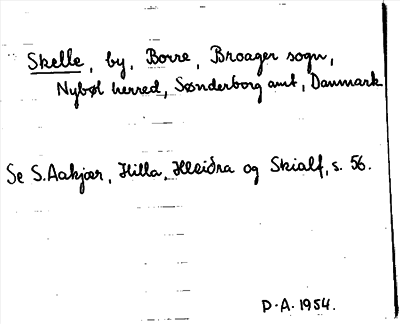 Skelle, by, Borre, Broager sogn,
Nybøl herred, Sønderborg amt, Danmark
Se S. Aakjær, Hilla, Hleiðra og Skialf, s. 56.
P.A. 1954.